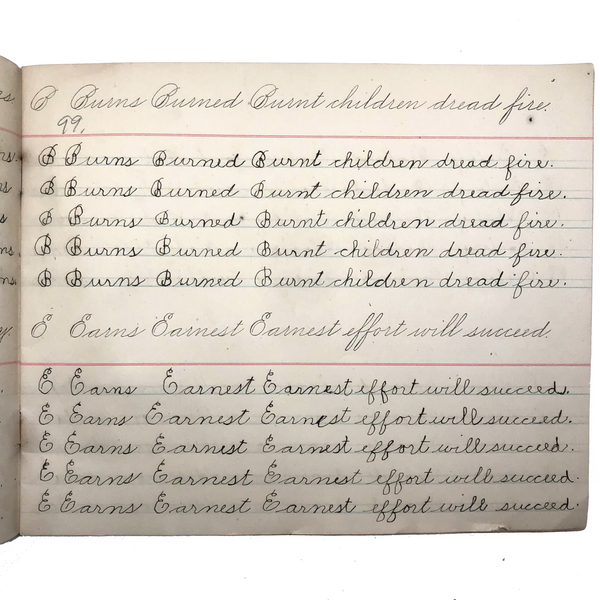 B Burns Burned Burnt children dread fire.
99.
B Burns Burned Burnt children dread fire.
B Burns Burned Burnt children dread fire.
B Burns Burned Burnt children dread fire.
B Burns Burned Burnt children dread fire.
B Burns Burned Burnt children dread fire.
E Earns Earnest Earnest effort will succeed.
E Earns Earnest Earnest effort will succeed.
E Earns Earnest Earnest effort will succeed.
E Earns Earnest Earnest effort will succeed.
E Earns Earnest Earnest effort will succeed.
E Earns Earnest Earnest effort will succeed.